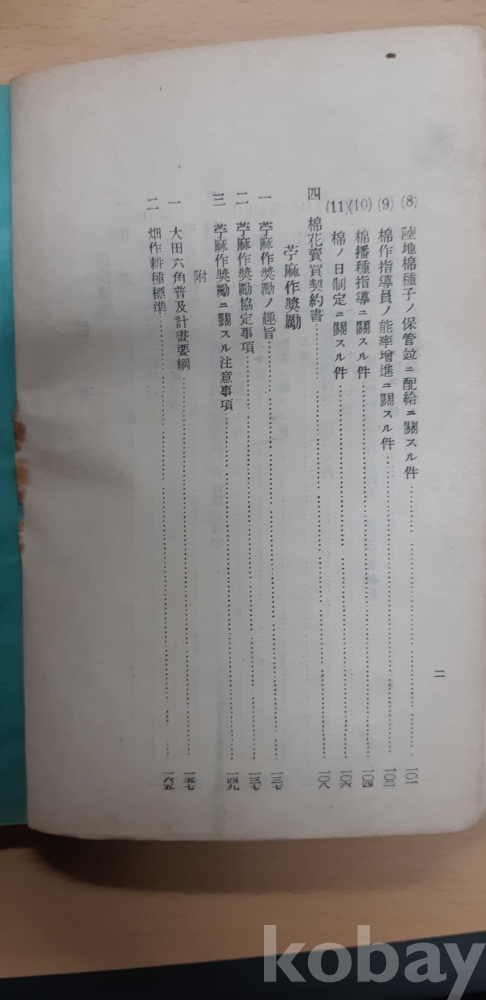 (8) 陸地棉種子ノ保管竝ニ配給ニ關スル件………一〇一
(9) 棉作指導員ノ能率增進ニ關スル件………一〇二
(10) 棉播種指導ニ關スル件………一〇四
(11) 棉ノ日制定ニ關スル件………一〇六
四 棉花賣買契約書………一〇八
苧麻作奬勵
一 苧麻作奬勵ノ趣旨………一三七
二 苧麻作奬勵協定事項………一三七
三 苧麻作奬勵ニ關スル注意事項………一四九
附
一 大田六角普及計畫要綱………一五七
二 畑作耕種標準………一六五
二
kobay